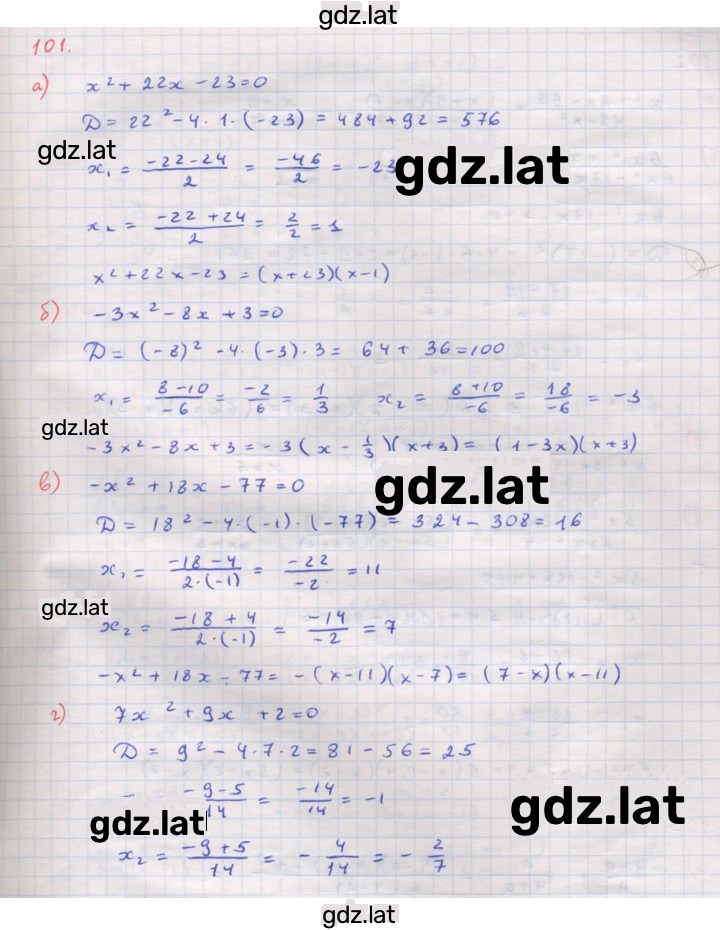 gdz.lat
101.
а) x² + 22x - 23 = 0
D = 22² - 4 · 1 · (-23) = 484 + 92 = 576
gdz.lat
x₁ = (-22 - 24)/2 = -46/2 = -23
gdz.lat
x₂ = (-22 + 24)/2 = 2/2 = 1
x² + 22x - 23 = (x + 23)(x - 1)
б) -3x² - 8x + 3 = 0
D = (-8)² - 4 · (-3) · 3 = 64 + 36 = 100
x₁ = (8 - 10)/-6 = -2/6 = 1/3 x₂ = (8 + 10)/-6 = 18/-6 = -3
gdz.lat
-3x² - 8x + 3 = -3(x - 1/3)(x + 3) = (1 - 3x)(x + 3)
в) -x² + 18x - 77 = 0
gdz.lat
D = 18² - 4 · (-1) · (-77) = 324 - 308 = 16
x₁ = (-18 - 4)/(2 · (-1)) = -22/-2 = 11
gdz.lat
x₂ = (-18 + 4)/(2 · (-1)) = -14/-2 = 7
-x² + 18x - 77 = -(x - 11)(x - 7) = (7 - x)(x - 11)
г) 7x² + 9x + 2 = 0
D = 9² - 4 · 7 · 2 = 81 - 56 = 25
(-9 - 5)/14 = -14/14 = -1
gdz.lat
gdz.lat
x₂ = (-9 + 5)/14 = - 4/14 = - 2/7
gdz.lat